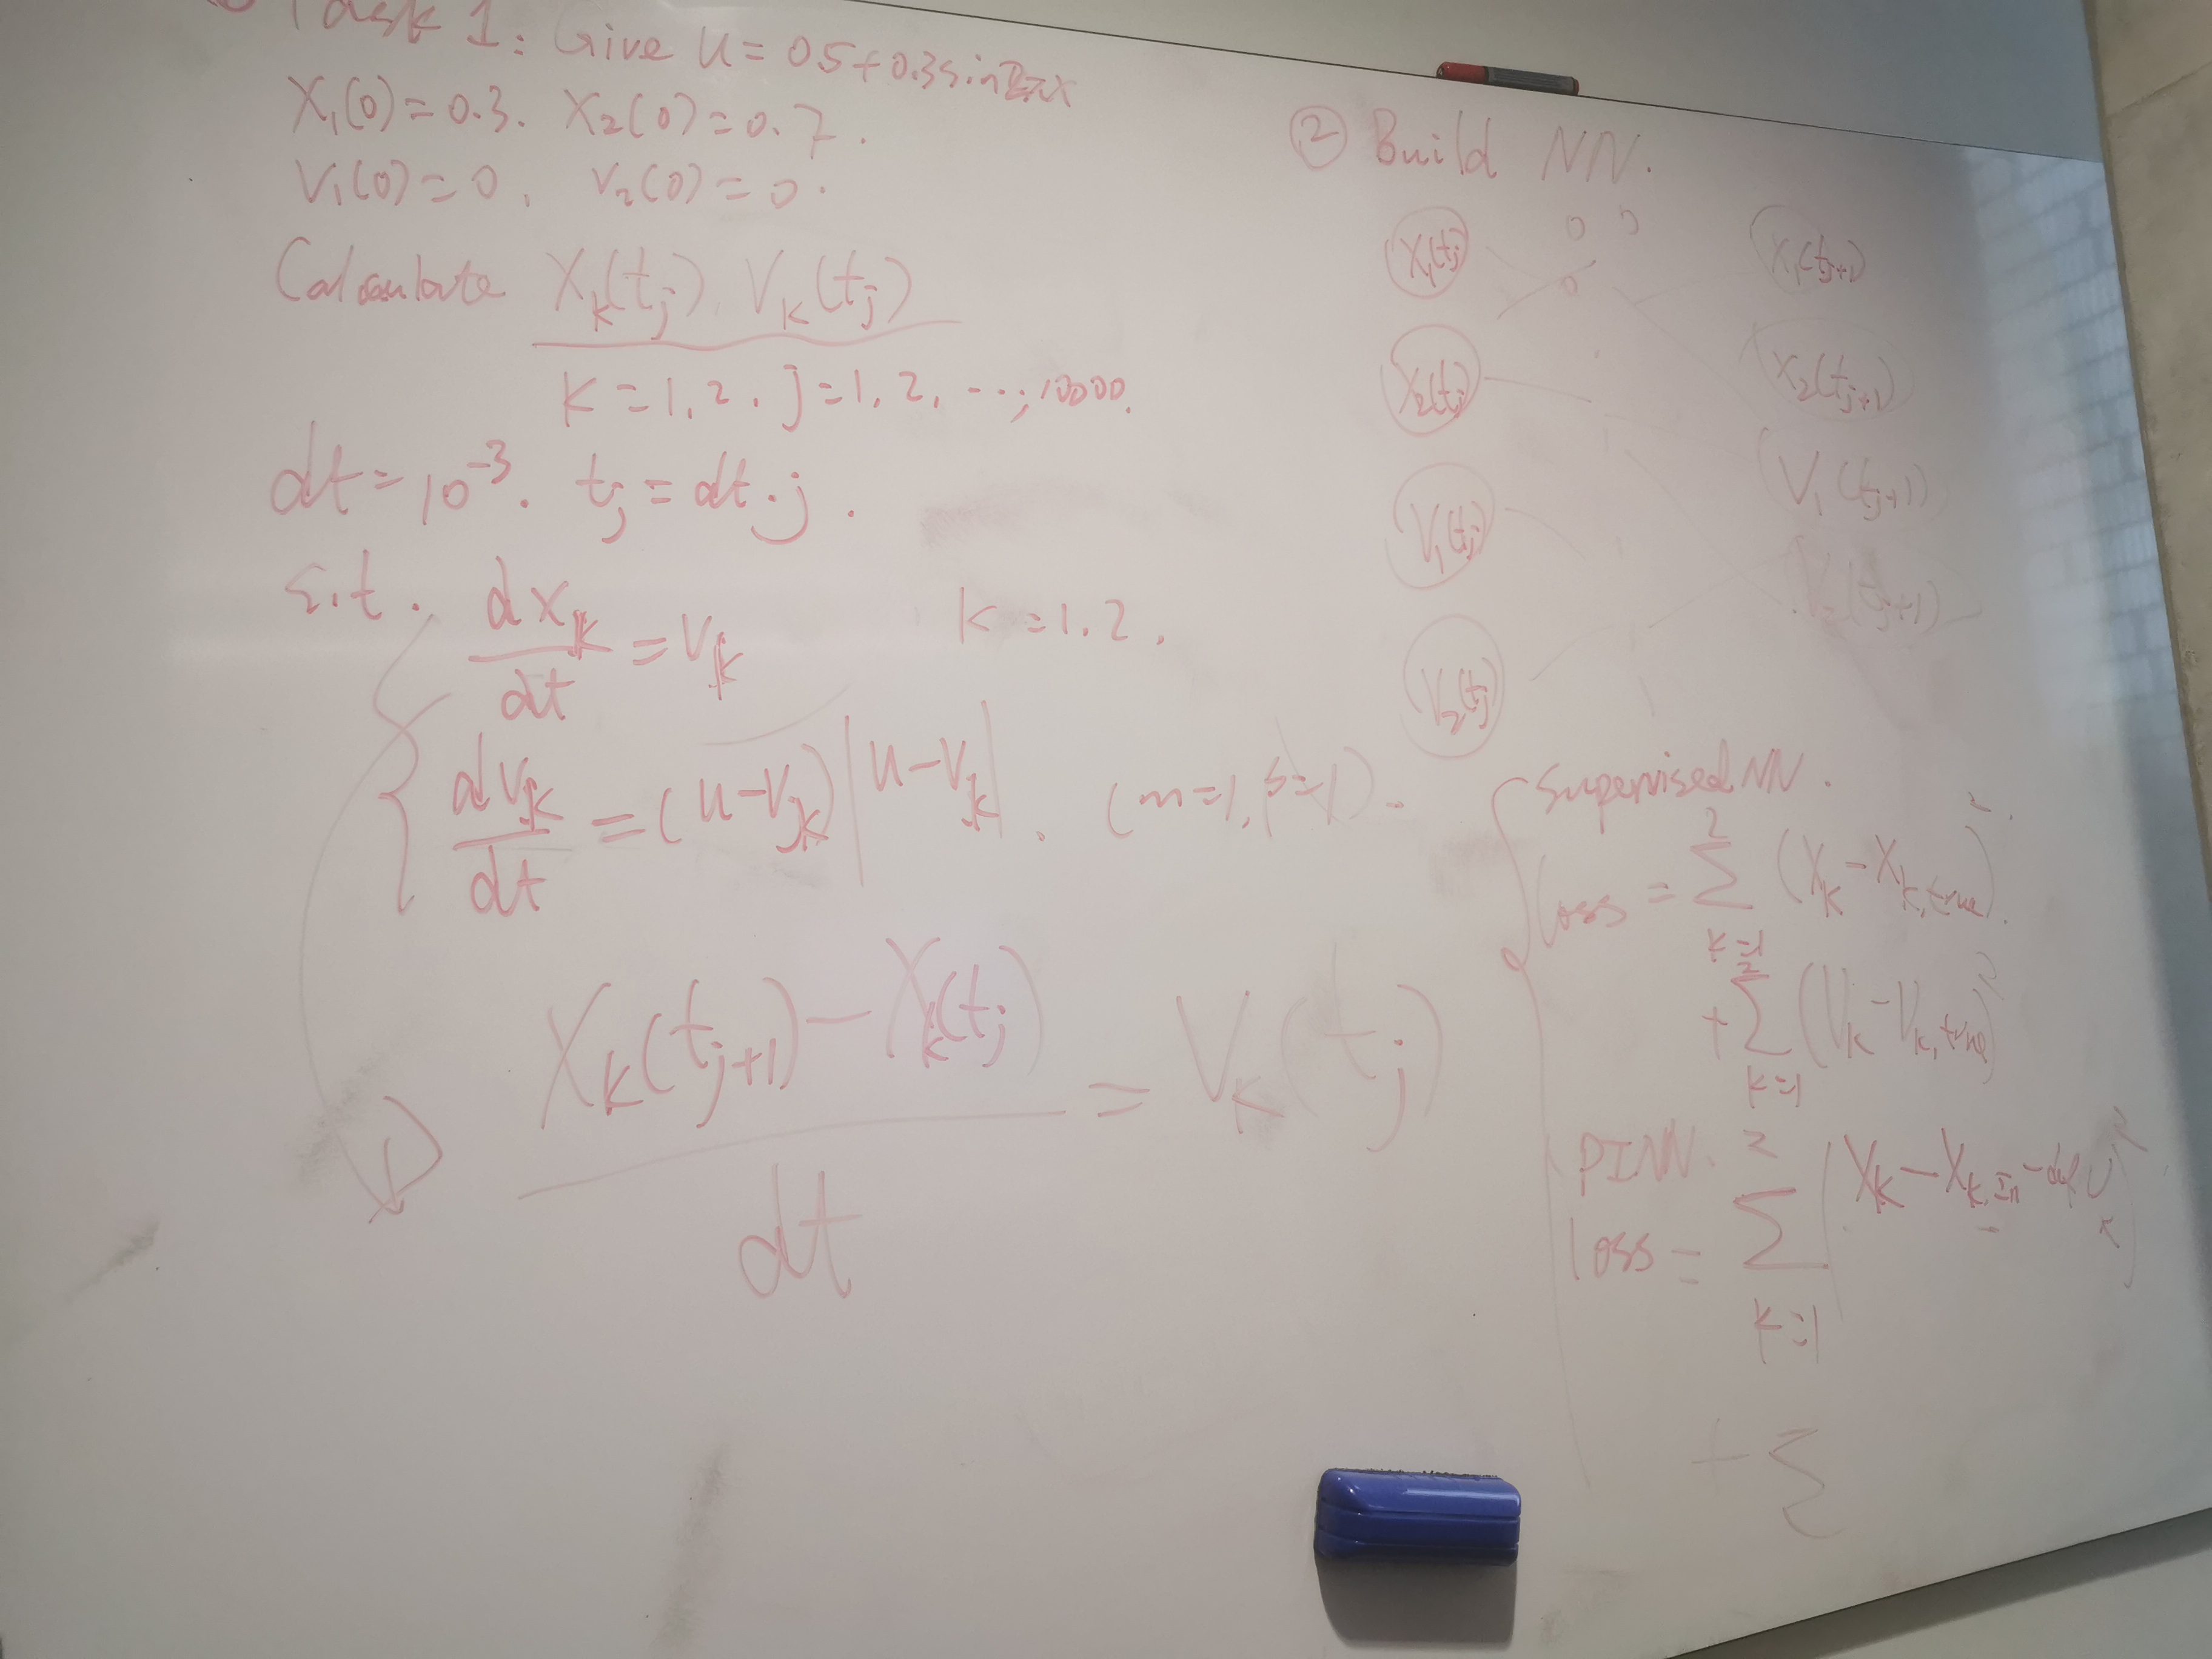 Task 1: Give u = 0.5 + 0.3 sin 2πx
X₁(0) = 0.3. X₂(0) = 0.7.
V₁(0) = 0, V₂(0) = 0.
Calculate Xₖ(tⱼ) Vₖ(tⱼ)
K = 1, 2, j = 1, 2, ..., 10000.
dt = 10⁻³. tⱼ = dt · j.
s.t. dxₖ/dt = vₖ K = 1, 2.
dvₖ/dt = (u - vₖ)|u - vₖ|. (m = 1, s = 1).
(Xₖ(tⱼ₊₁) - Xₖ(tⱼ))/dt = Vₖ(tⱼ)
② Build NN.
X₁(tⱼ) X₁(tⱼ₊₁)
X₂(tⱼ) X₂(tⱼ₊₁)
V₁(tⱼ) V₁(tⱼ₊₁)
V₂(tⱼ) V₂(tⱼ₊₁)
Supervised NN.
loss = ∑ₖ₌₁² (Xₖ - Xₖ,true)².
+ ∑ₖ₌₁² (Vₖ - Vₖ,true)²
PINN.
loss = ∑ₖ₌₁² (Xₖ - Xₖ,In - dt vₖ)²
+ ∑